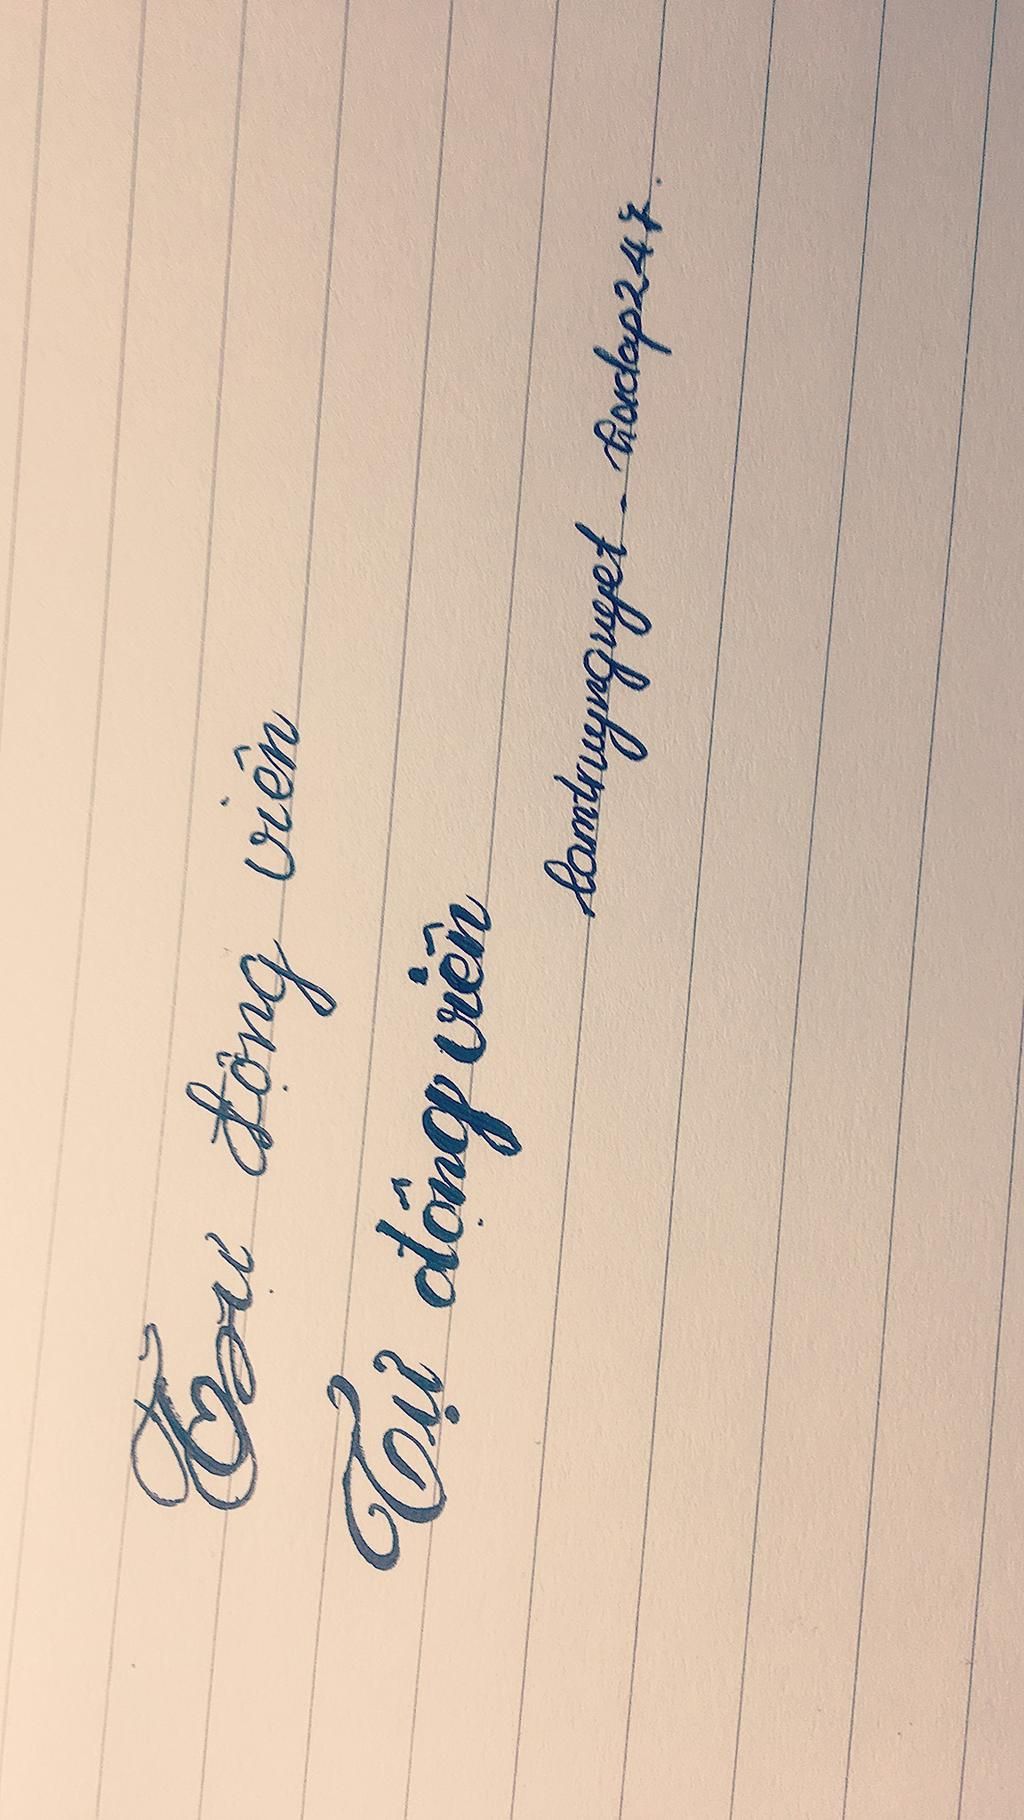 Tự động viên
Tự động viên
lamtruynguyet - hoidap247.